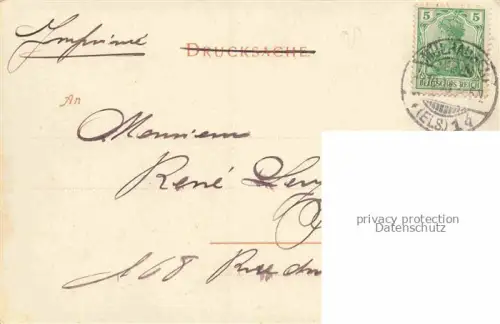 Imprimé
DRUCKSACHE
5 5
DEUTSCHES REICH
MÜLHAUSEN
(ELS) 14
An
Monsieur
René
168 Rue
privacy protection
Datenschutz